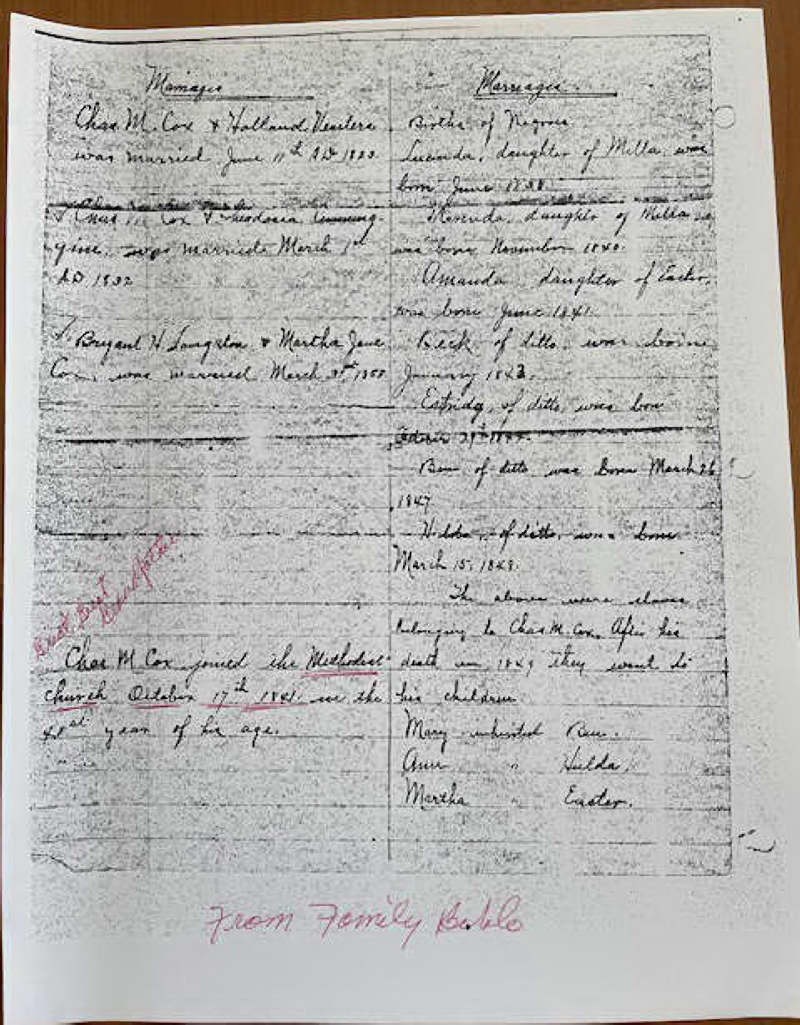 Marriages
Chas. M. Cox & Holland Venters
was married June 11th AD 1822.
Cox & Theodosia Cumming-
was married March 1st
AD 1832
Bryant H. Langston & Martha Jane
Cox, was married March
Chas M. Cox joined the Methodist
church October 17th 1841 in the
year of his age.
Marriages.
Births of Negroes
Lucinda, daughter of Milla, was
born June
daughter of Milla
was born November 1840.
Amanda, daughter of Easter,
was born June 1841.
Beck of ditto, was borne
January 1843.
of ditto, was born
Ben of ditto was born March 26
1847
Hilda, of ditto, was born
March 15, 1849.
The above were slaves
belonging to Chas. M. Cox. After his
death in 1849 they went to
his children
Mary inherited Ben.
Ann " Hulda,
Martha " Easter.
Great Great
Grandfather
From Family Bible